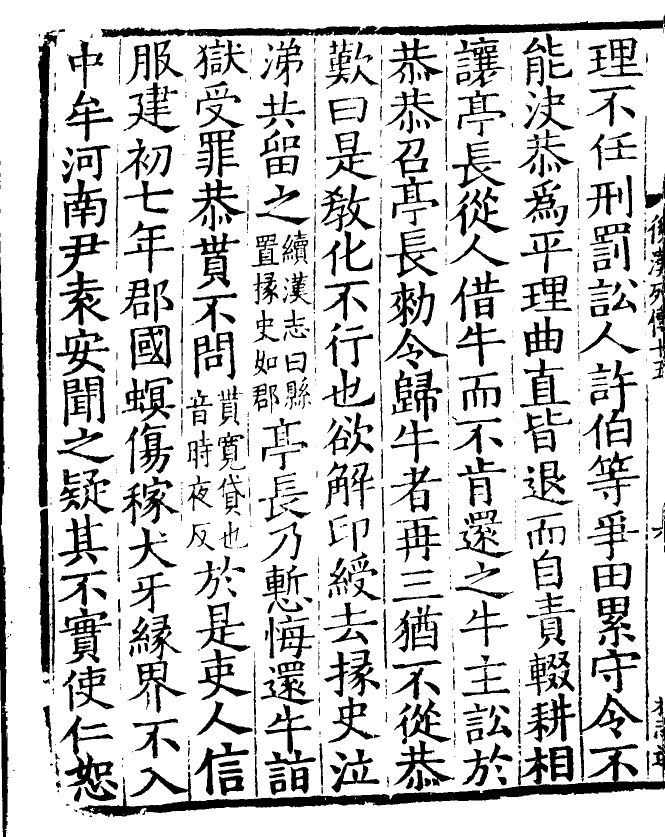 理不任刑罰訟人許伯等爭田累守令不
能決恭爲平理曲直皆退而自責輟耕相
讓亭長從人借牛而不肯還之牛主訟於
恭恭召亭長勑令歸牛者再三猶不從恭
歎曰是教化不行也欲解印綬去掾史泣
涕共留之續漢志曰縣置掾史如郡亭長乃慙悔還牛詣
獄受罪恭貰不問貰寬貸也音時夜反於是吏人信
服建初七年郡國螟傷稼犬牙緣界不入
中牟河南尹袁安聞之疑其不實使仁恕